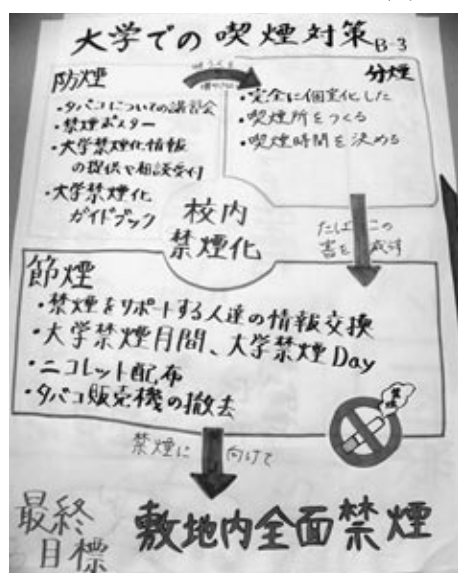 大学での喫煙対策 B-3
防煙
・タバコについての講習会
・禁煙ポスター
・大学禁煙化情報
の提供や相談受付
・大学禁煙化
ガイドブック
分煙
・完全に個室化した
・喫煙所をつくる
・喫煙時間を決める
校内
禁煙化
たばこの
害を減ら
節煙
・禁煙をサポートする人達の情報交換
・大学禁煙月間、大学禁煙Day
・ニコレット配布
・タバコ販売機の撤去
禁煙に向けて
最終
目標
敷地内全面禁煙